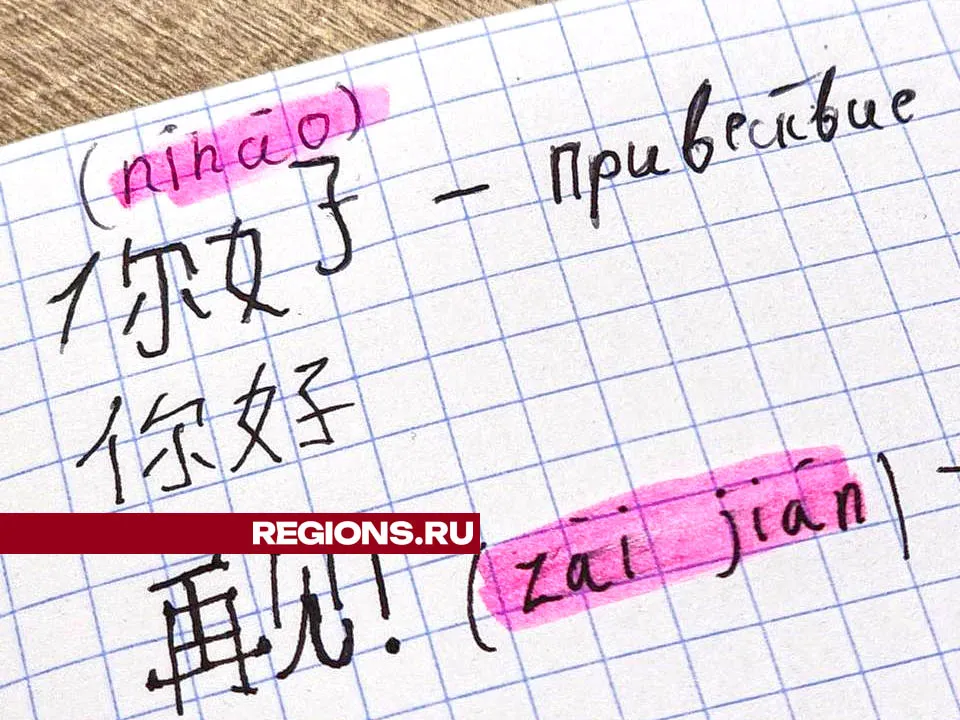 (nihāo)
你好 - привествие
你好
REGIONS.RU
再见! (zài jián) -